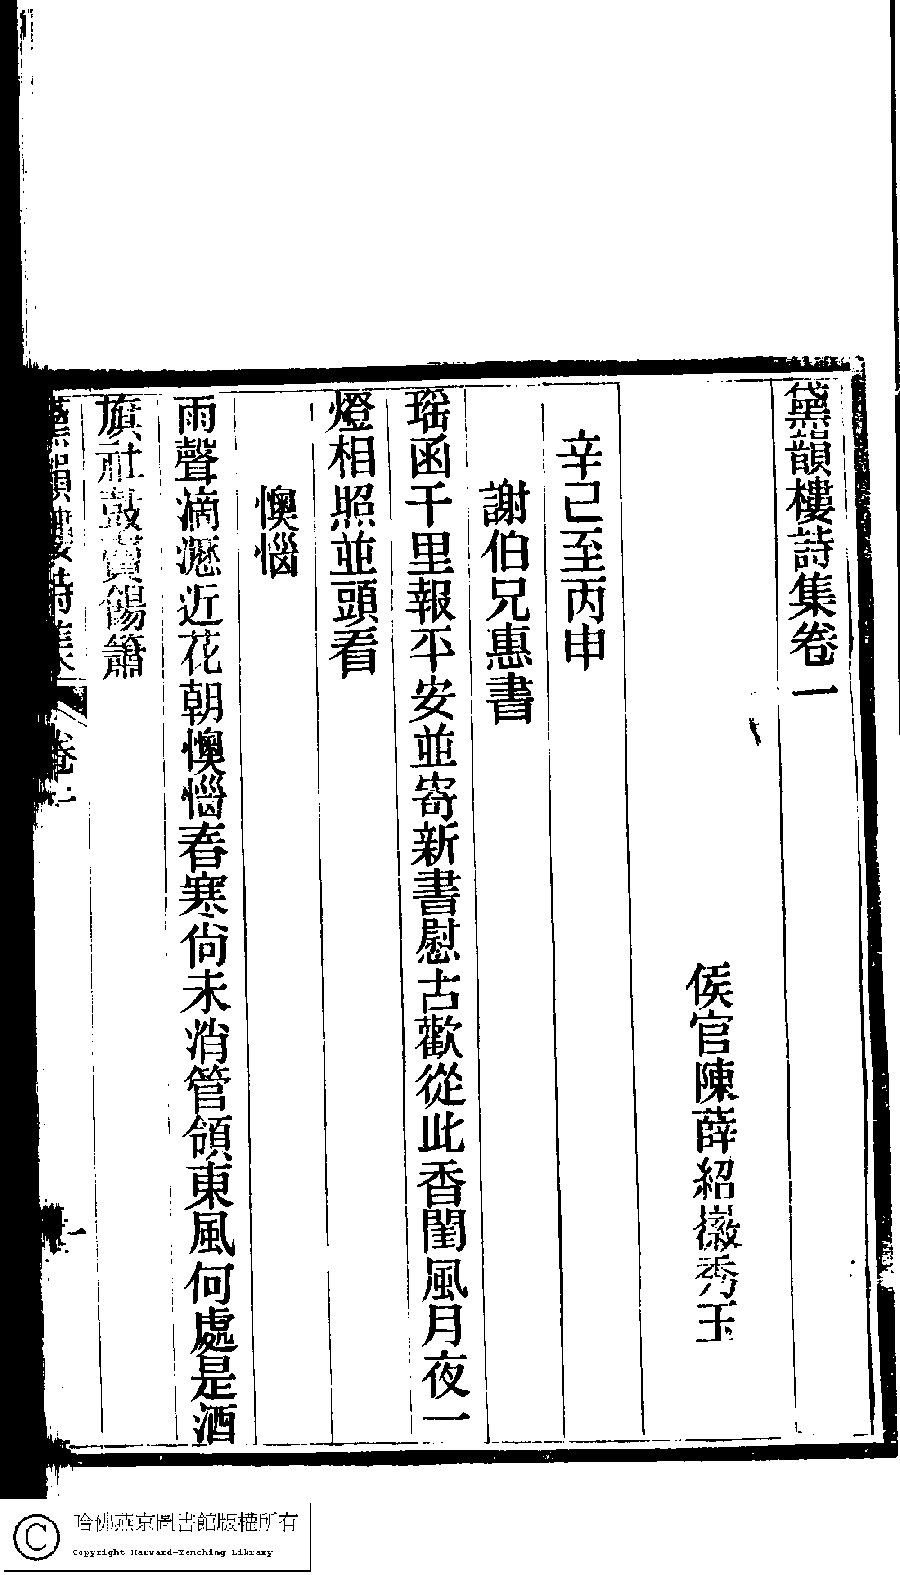 黛韻樓詩集卷一
侯官陳薛紹徽秀玉
辛巳至丙申
謝伯兄惠書
瑶函千里報平安並寄新書慰古歡從此香閨風月夜一
燈相照並頭看
懊惱
雨聲滴瀝近花朝懊惱春寒尚未消管領東風何處是酒
旗社鼓賣餳簫
黛韻樓詩集 卷一
一
哈佛燕京圖書館版權所有
Copyright Harvard-Yenching Library